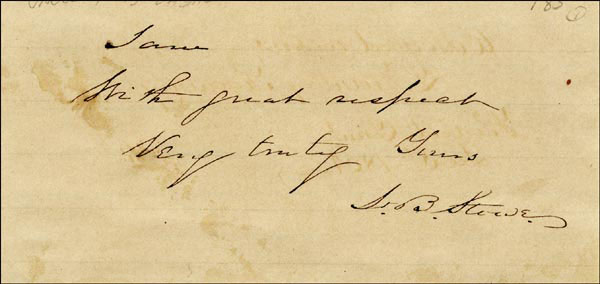 I am
With great respect
Very truly Yours
H. B. Stowe